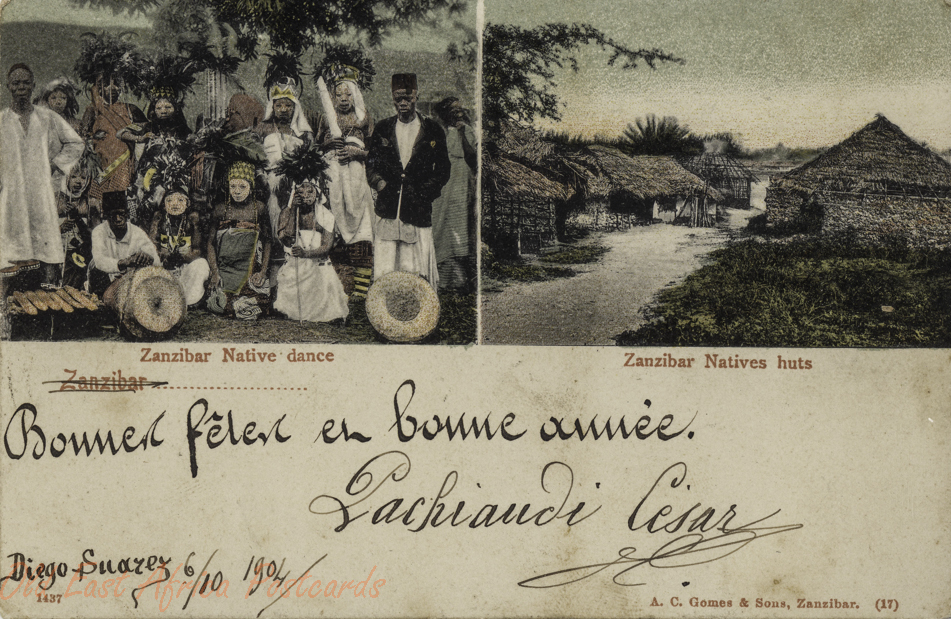 Zanzibar Native dance
Zanzibar Natives huts
Zanzibar
Bonnes fêtes et bonne année.
Pachiaudi César
Diego-Suarez 6/10 1904
Old East Africa Postcards
1437
A. C. Gomes & Sons, Zanzibar. (17)